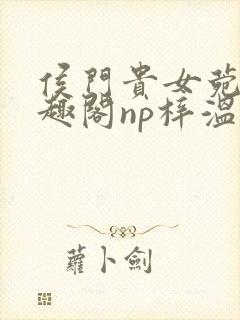 侯門貴女菀
趣閣np梓溫
蘿卜劍